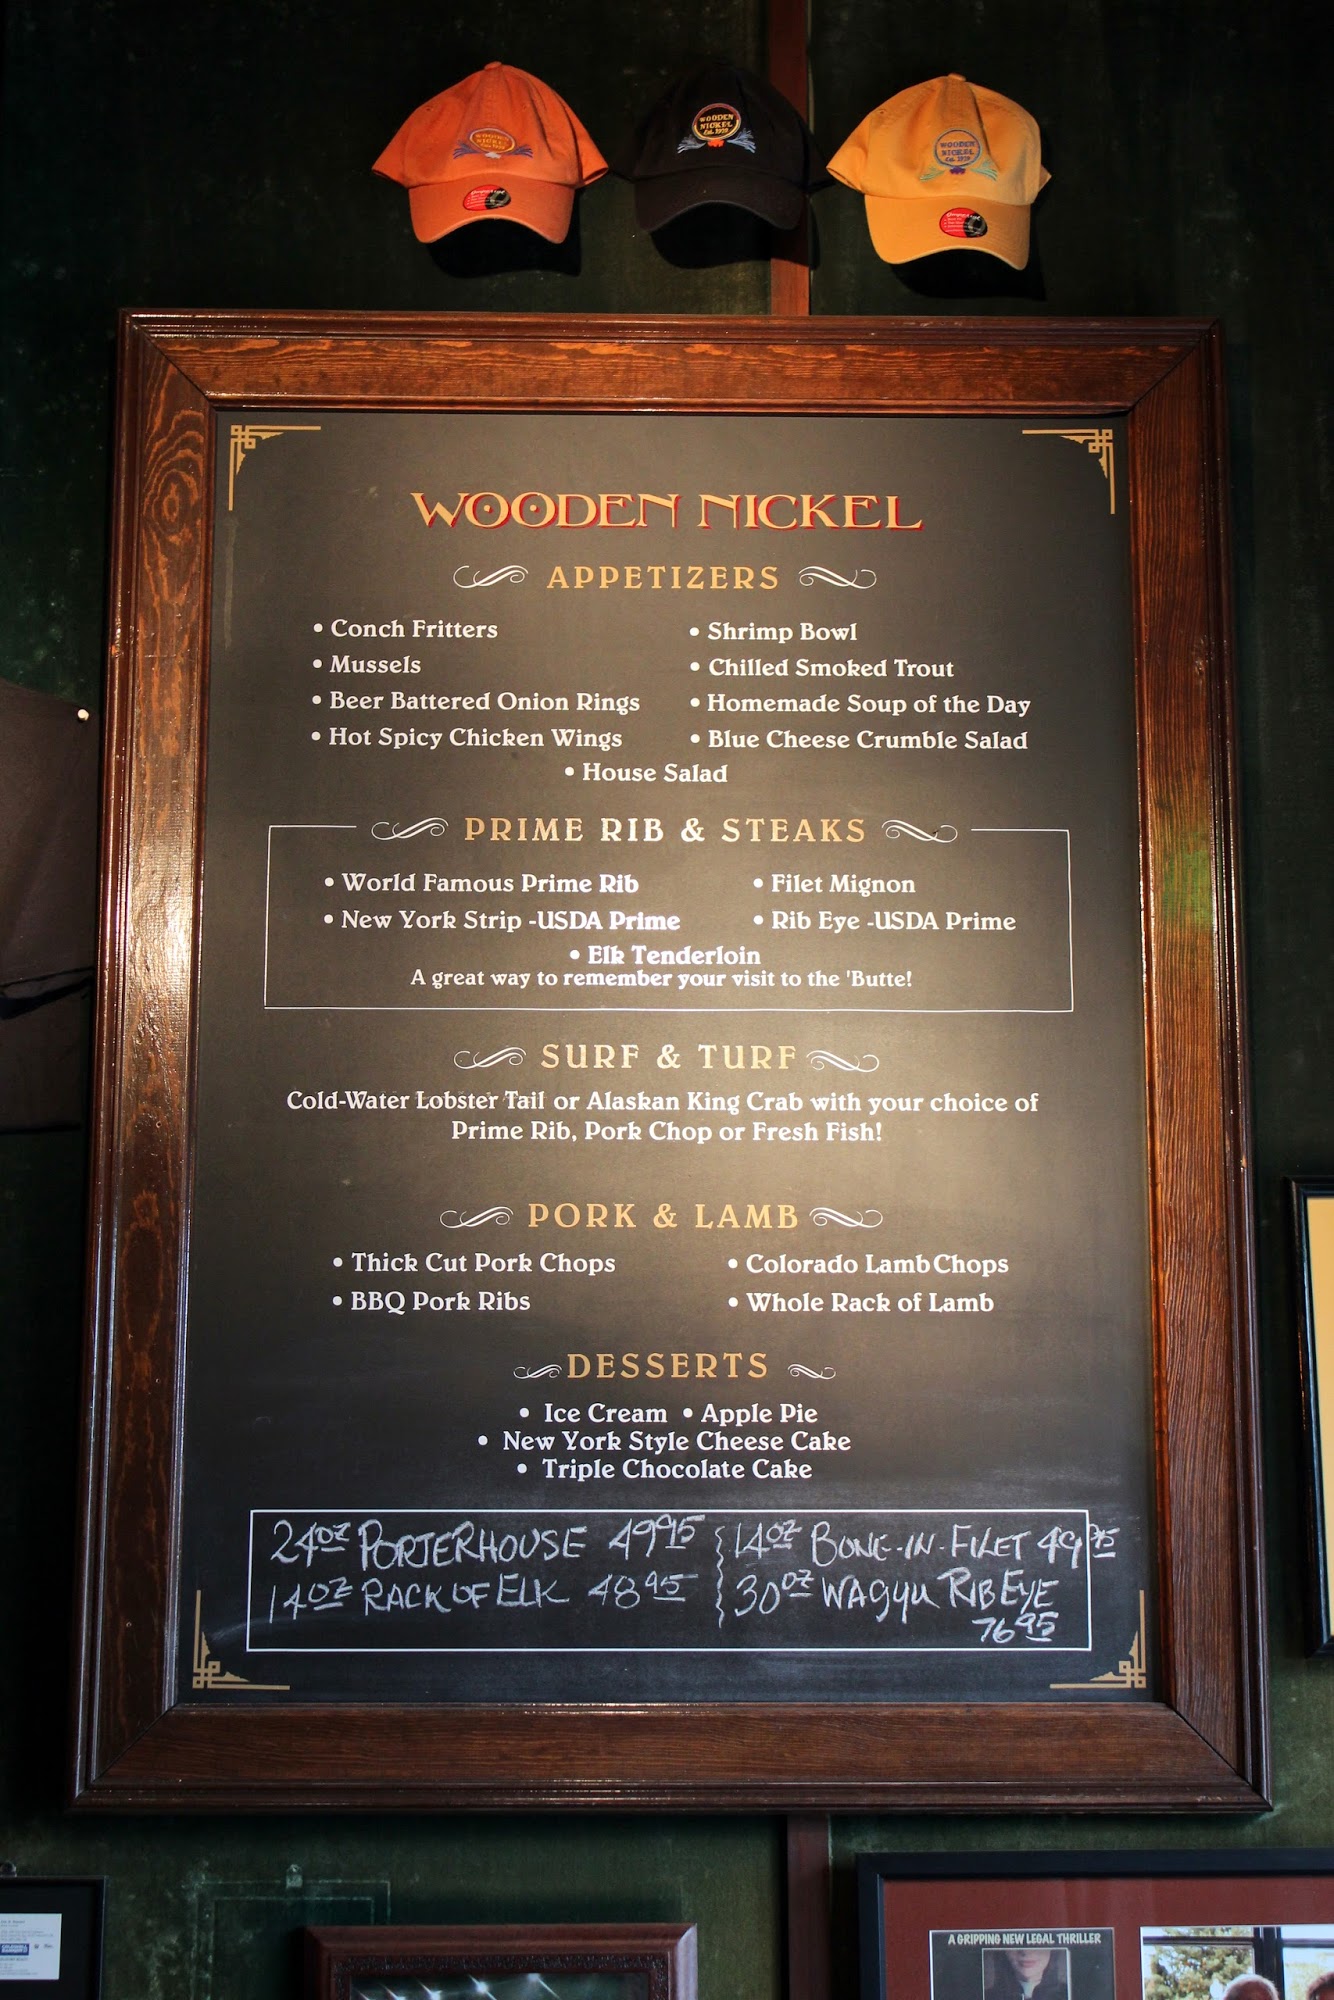 WOODEN NICKEL Est. 1929
WOODEN NICKEL
APPETIZERS
• Conch Fritters
• Mussels
• Beer Battered Onion Rings
• Hot Spicy Chicken Wings
• Shrimp Bowl
• Chilled Smoked Trout
• Homemade Soup of the Day
• Blue Cheese Crumble Salad
• House Salad
PRIME RIB & STEAKS
• World Famous Prime Rib
• Filet Mignon
• New York Strip -USDA Prime
• Rib Eye -USDA Prime
• Elk Tenderloin
A great way to remember your visit to the 'Butte!
SURF & TURF
Cold-Water Lobster Tail or Alaskan King Crab with your choice of
Prime Rib, Pork Chop or Fresh Fish!
PORK & LAMB
• Thick Cut Pork Chops
• Colorado Lamb Chops
• BBQ Pork Ribs
• Whole Rack of Lamb
DESSERTS
• Ice Cream • Apple Pie
• New York Style Cheese Cake
• Triple Chocolate Cake
24oz PORTERHOUSE 49 95
14oz RACK OF ELK 48 95
14oz BONE-IN-FILET 49 95
30oz WAGYU RIB EYE
76 95
A GRIPPING NEW LEGAL THRILLER